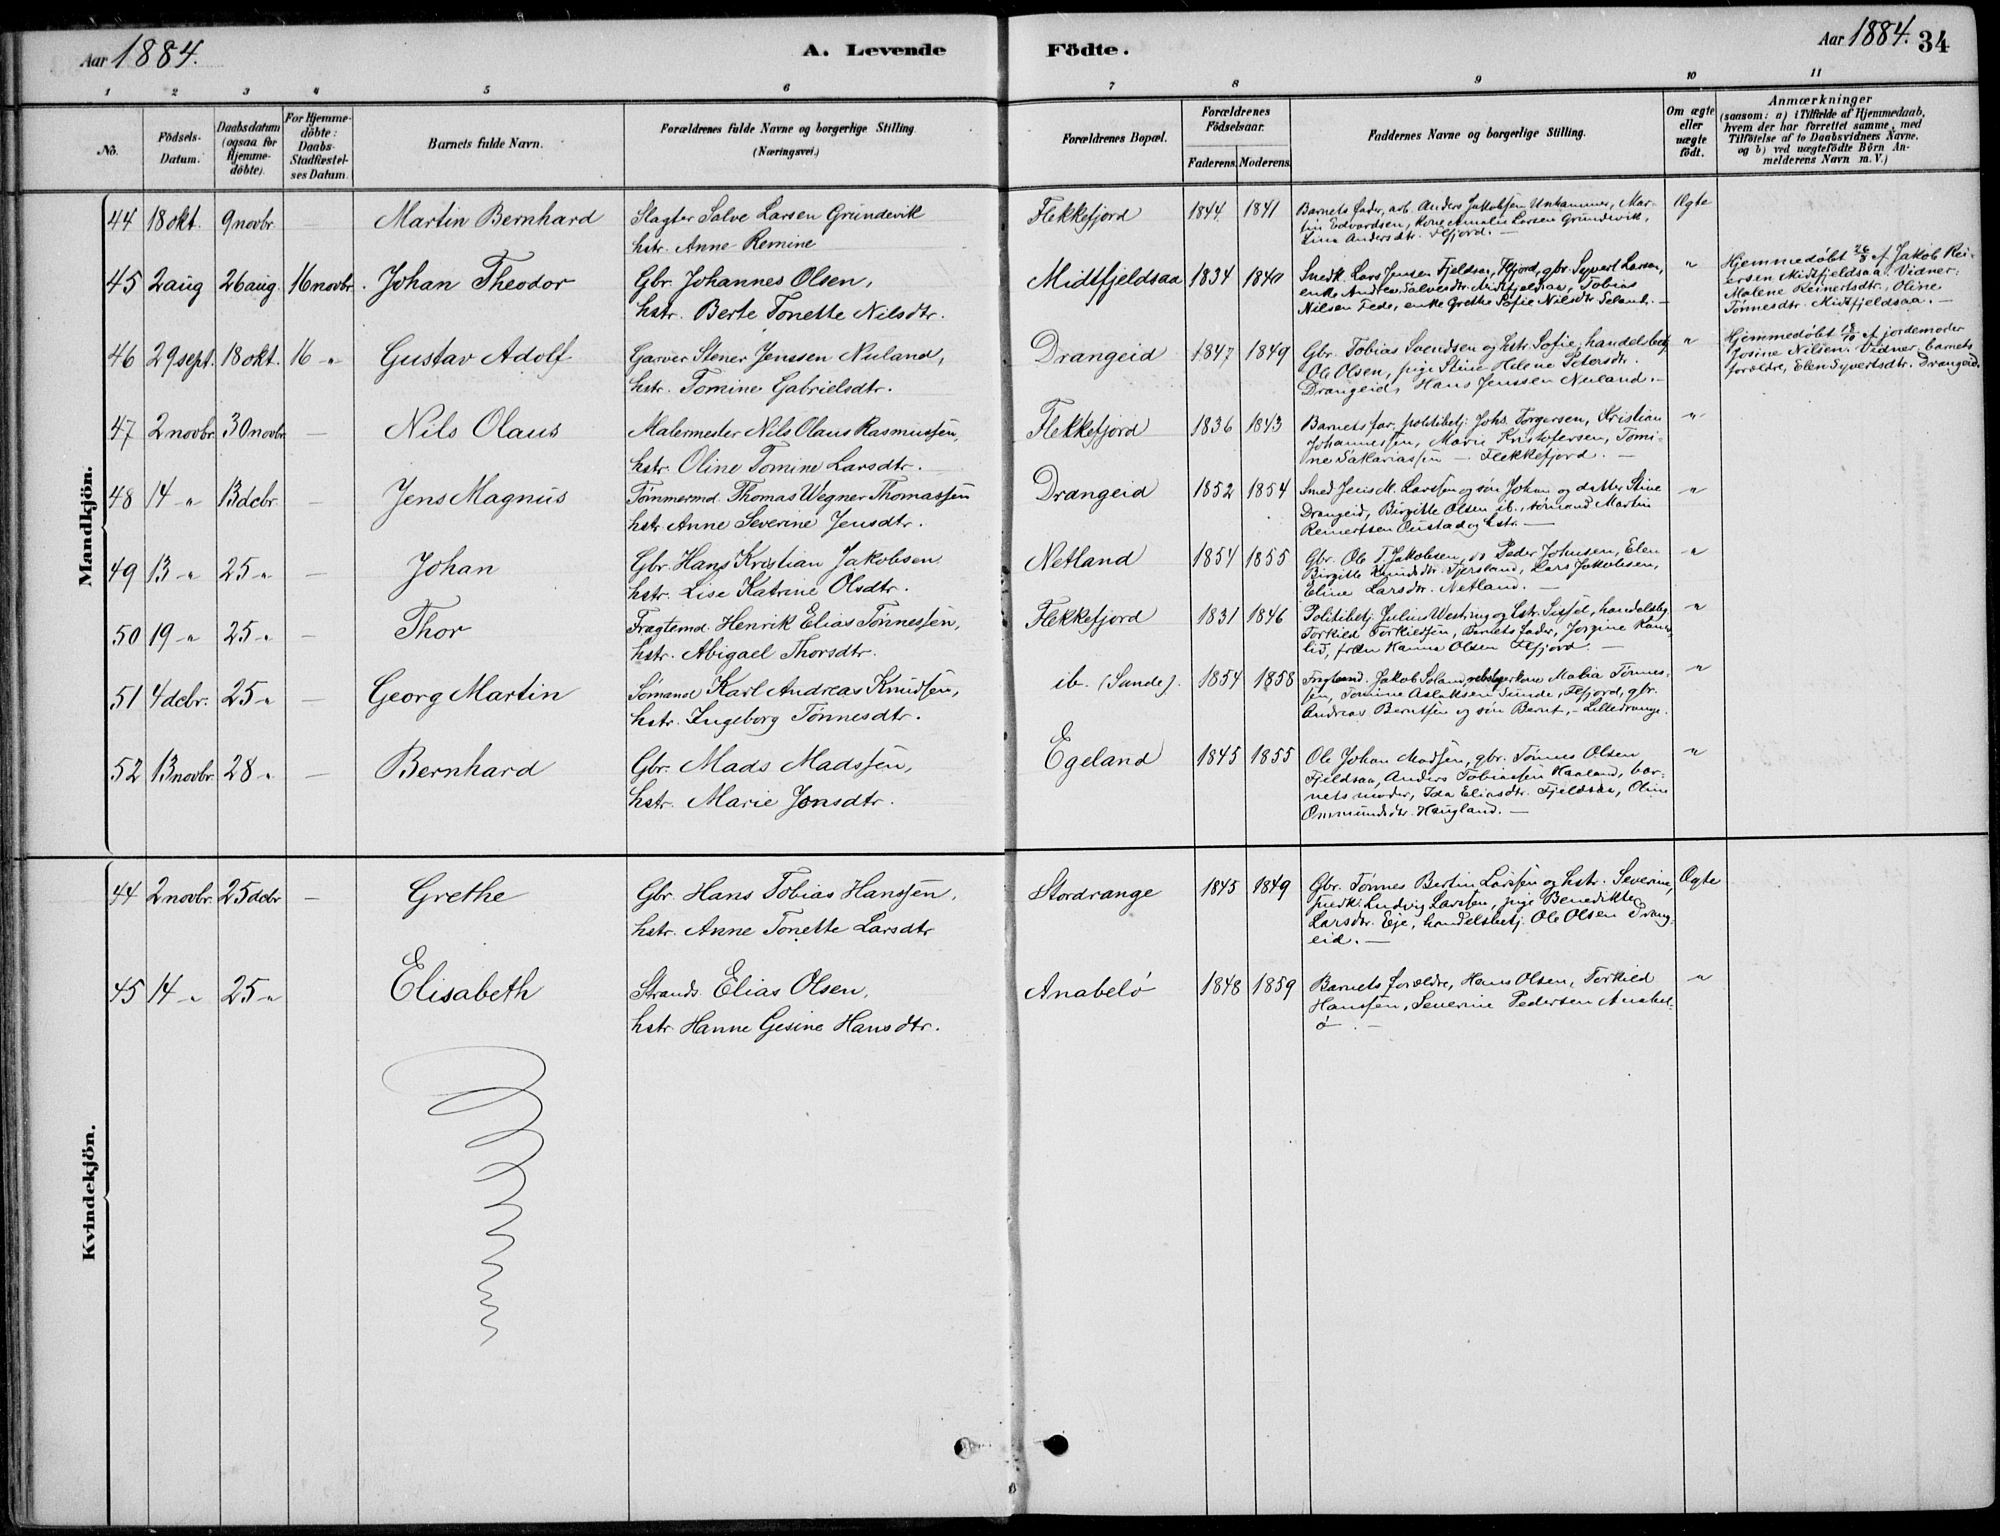 Aar 1884.
A. Levende Födte.
Aar 1884. 34
1 2 3 4 5 6 7 8 9 10 11
No.
Födsels-
Datum.
Daabsdatum
(ogsaa for
Hjemme-
döbte).
For Hjemme-
döbte:
Daabs-
Stadfæstel-
ses Datum.
Barnets fulde Navn.
Forældrenes fulde Navne og borgerlige Stilling
(Næringsvei.)
Forældrenes Bopæl.
Forældrenes
Födselsaar.
Faderens. Moderens.
Faddernes Navne og borgerlige Stilling.
Om ægte
eller
uægte
födt.
Anmærkninger
(saasom: a) i Tilfælde af Hjemmedaab,
hvem der har forrettet samme, med
Tilföielse af to Daabsvidners Navne.
og b) ved uægtefödte Börn An-
melderens Navn m. V.)
Mandkjön.
44 18 okt. 9 novbr. — Martin Bernhard
Slagter Salve Larsen Grundevik
hstr. Anne Remine
Flekkefjord 1844 1841
Barnets fader, arb. Anders Jakobsen Unhammer, Mar-
tin Edvardsen, kone Amalie Larsen Grundevik,
Lina Andersdtr. Flfjord. —
Ægte
45 2 aug 26 aug. 16 novbr. Johan Theodor
Gbr. Johannes Olsen,
hstr. Berte Tonette Nilsdtr.
Midtfjeldsaa 1834 1840
Smedk. Lars Jensen Fjeldsaa, Flfjord, gbr. Syvert Larsen,
enke Andrea Salvesdtr. Midtfjeldsaa, Tobias
Nilsen Fede, enke Grethe Sofie Nilsdtr.
"
Hjemmedøbt 26/8 af Jakob Rei-
ersen Midtfjeldsaa. Vidner:
Malene Reinertsdtr., Oline
Tønnesdtr. Midtfjeldsaa. —
46 29 sept. 18 okt. 16 " Gustav Adolf
Garver Stener Jenssen Nuland,
hstr. Tomine Gabrielsdtr.
Drangeid 1847 1849
Gbr. Tobias Svendsen og hstr. Sofie, handelsbetj.
Ole Olsen, pige Stine Helene Petersdtr.
Drangeid, Hans Jenssen Nuland. —
"
Hjemmedøbt 18/10 af jordemoder
Josine Nilsen. Vidner: barnets
forældre, Elen Syvertsdtr. Drangeid.
47 2 novbr. 30 novbr. — Nils Olaus
Malermester Nils Olaus Rasmussen,
hstr. Oline Tomine Larsdtr. —
Flekkefjord 1836 1843
Barnets far, politibetj. Johs. Torgersen, Kristian
Johannessen, Marie Kristofersen, Tomi-
ne Sakariassen — Flekkefjord. —
"
48 14 " 13 dcbr. — Jens Magnus
Tømmermd. Thomas Wegner Thomassen
hstr. Anne Severine Jensdtr.
Drangeid 1852 1854
Smed Jens M. Larssen og søn Johan og datter Stine
Drangeid, Birgitte Olsen ib., sømand Martin
Reinertsen og hstr. —
"
49 13 " 25 " — Johan
Gbr. Hans Kristian Jakobsen
hstr. Lise Katrine Olsdtr.
Netland 1854 1855
Gbr. Ole T. Jakobsen, Peder Johnsen, Elen
Birgitte Knudsdtr. Fjersland, Lars Jakobsen,
Eline Larsdtr. Netland. —
"
50 19 " 25 " — Thor
Fragtemd. Henrik Elias Tønnessen,
hstr. Abigael Thorsdtr.
Flekkefjord 1831 1846
Politibetj. Julius Westring og hstr. Sissel, handelsbg.
Torkild Torkildsen, Barnets fader, Jorgine
frøken Hanna Olsen Flfjord. —
"
51 4 dcbr. 25 " — Georg Martin
Sømand Karl Andreas Knudsen,
hstr. Ingeborg Tønnesdtr.
ib. (Sunde). 1854 1858
Fragtemd. Jakob Soland, kone Malia Tønnes-
sen, Tomine Aslaksen Sunde, Flfjord, gbr.
Andreas Berntsen og søn Bernt, — Lilledrange.
"
52 13 novbr. 28 " — Bernhard
Gbr. Mads Madssen,
hstr. Marie Jonsdtr.
Egeland 1845 1855
Ole Johan Madsen, gbr. Tønnes Olsen
Fjeldsaa, Anders Tobiassen Haaland, bar-
nets moder, Ida Eliasdtr. Fjeldsaa, Oline
Ommundsdtr. Haugland. —
"
Kvindekjön.
44 2 novbr. 25 dcbr — Grethe
Gbr. Hans Tobias Hanssen,
hstr. Anne Tonette Larsdtr
Stordrange 1845 1849
Gbr. Tønnes Bertin Larssen og hstr. Severine,
Ludvig Larssen, pige Benedikte
Larsdtr. Eje, handelsbetj. Ole Olsen Drang-
eid. —
Ægte
45 14 " 25 " Elisabeth
Strands. Elias Olsen,
hstr. Hanne Gesine Hansdtr.
Anabelø 1848 1859
Barnets forældre, Hans Olsen, Torkild
Hanssen, Severine Pedersen Anabel-
ø. —
"